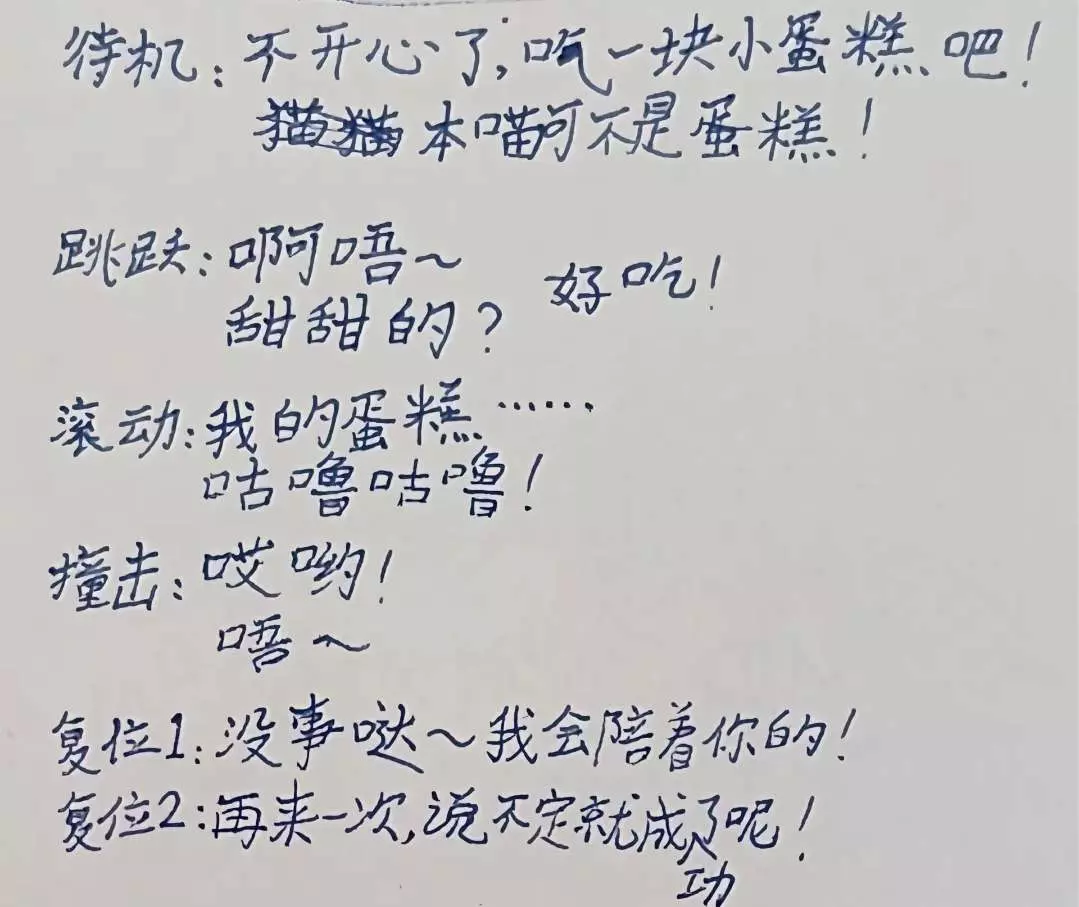 待机：不开心了，吃一块小蛋糕吧！
猫猫本喵可不是蛋糕！
跳跃：啊唔～
甜甜的？
好吃！
滚动：我的蛋糕……
咕噜咕噜！
撞击：哎哟！
唔～
复位1：没事哒～我会陪着你的！
复位2：再来一次，说不定就成功了呢！